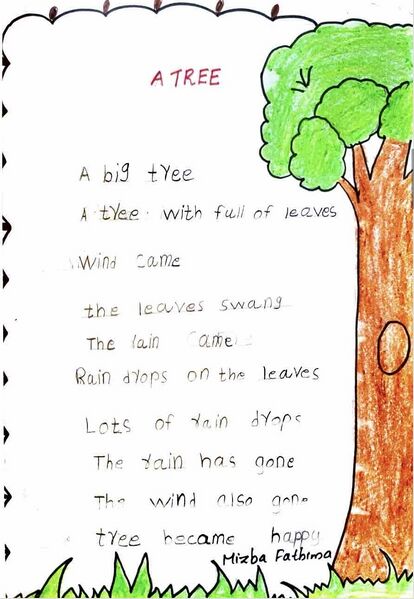 A TREE
A big tree
A tree with full of leaves
Wind came
the leaves swang
The rain came
Rain drops on the leaves
Lots of rain drops
The rain has gone
The wind also gone
tree became happy
Mizba Fathima